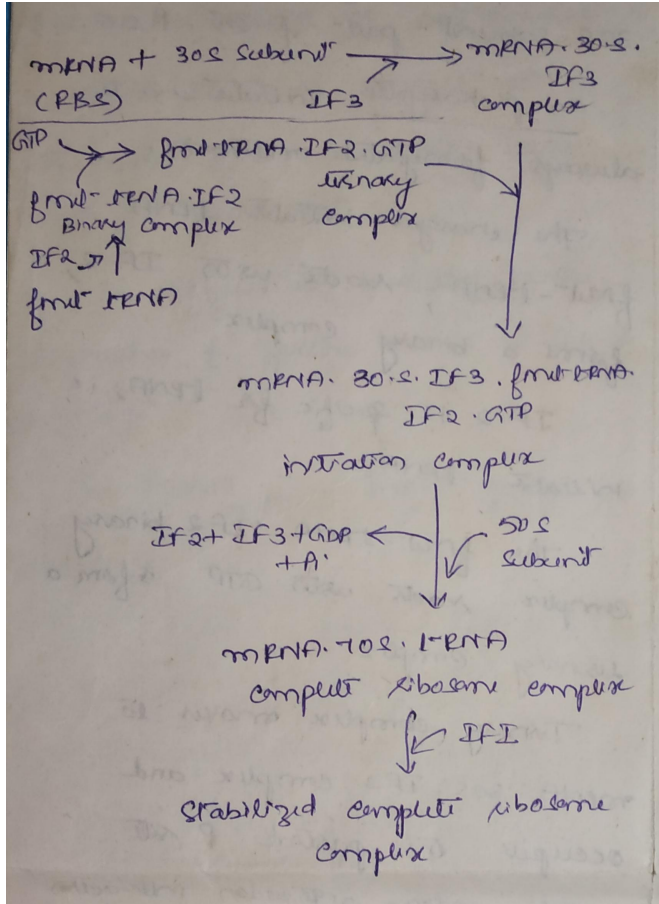 mRNA + 30S Subunit → mRNA·30·S·
(RBS) IF3 IF3
complex
GTP → fmet-tRNA·IF2·GTP
ternary
complex
fmet-tRNA·IF2
Binary complex
IF2
fmet tRNA
mRNA·30·S·IF3·fmet-tRNA·
IF2·GTP
initiation complex
IF2+ IF3+GDP
+Pi
50S
Subunit
mRNA·70S·t-RNA
Complete ribosome complex
IFI
Stabilized complete ribosome
Complex